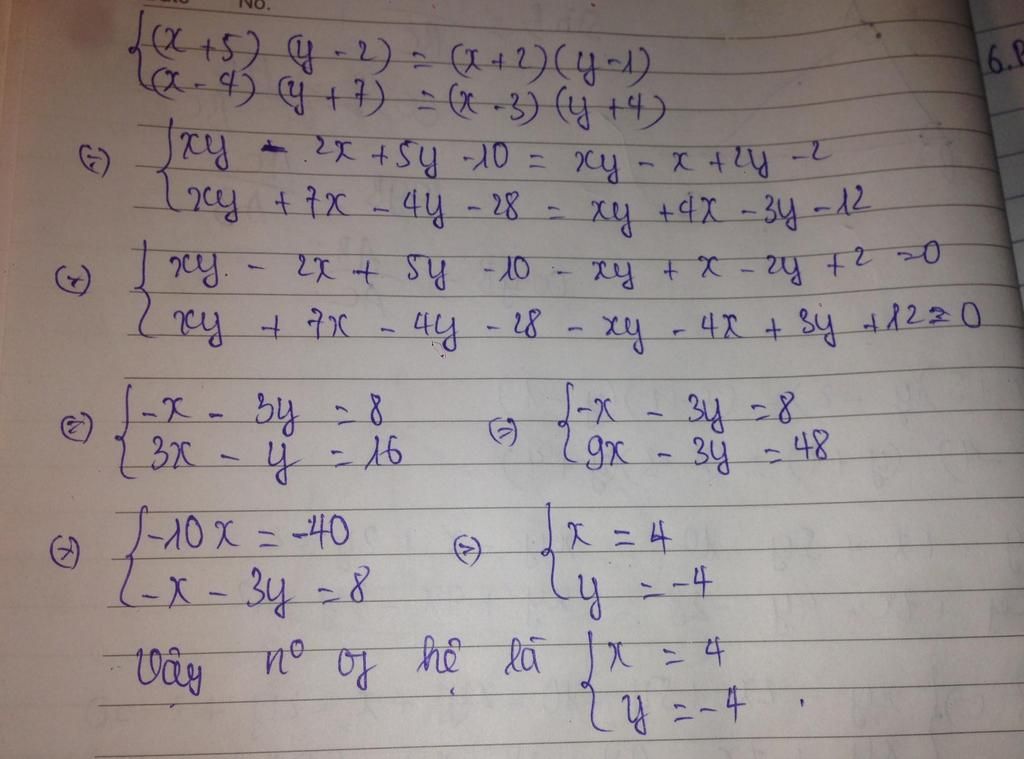 No.
{(x + 5) (y - 2) = (x + 2)(y - 1)
(x - 4) (y + 7) = (x - 3)(y + 4)
6.
(=) {xy - 2x + 5y - 10 = xy - x + 2y - 2
xy + 7x - 4y - 28 = xy + 4x - 3y - 12
(=) {xy - 2x + 5y - 10 - xy + x - 2y + 2 = 0
xy + 7x - 4y - 28 - xy - 4x + 3y + 12 = 0
(=) {-x - 3y = 8 (=) {-x - 3y = 8
3x - y = 16 9x - 3y = 48
(=) {-10x = -40 (=) {x = 4
-x - 3y = 8 y = -4
Vậy nº of hệ là {x = 4
y = -4.